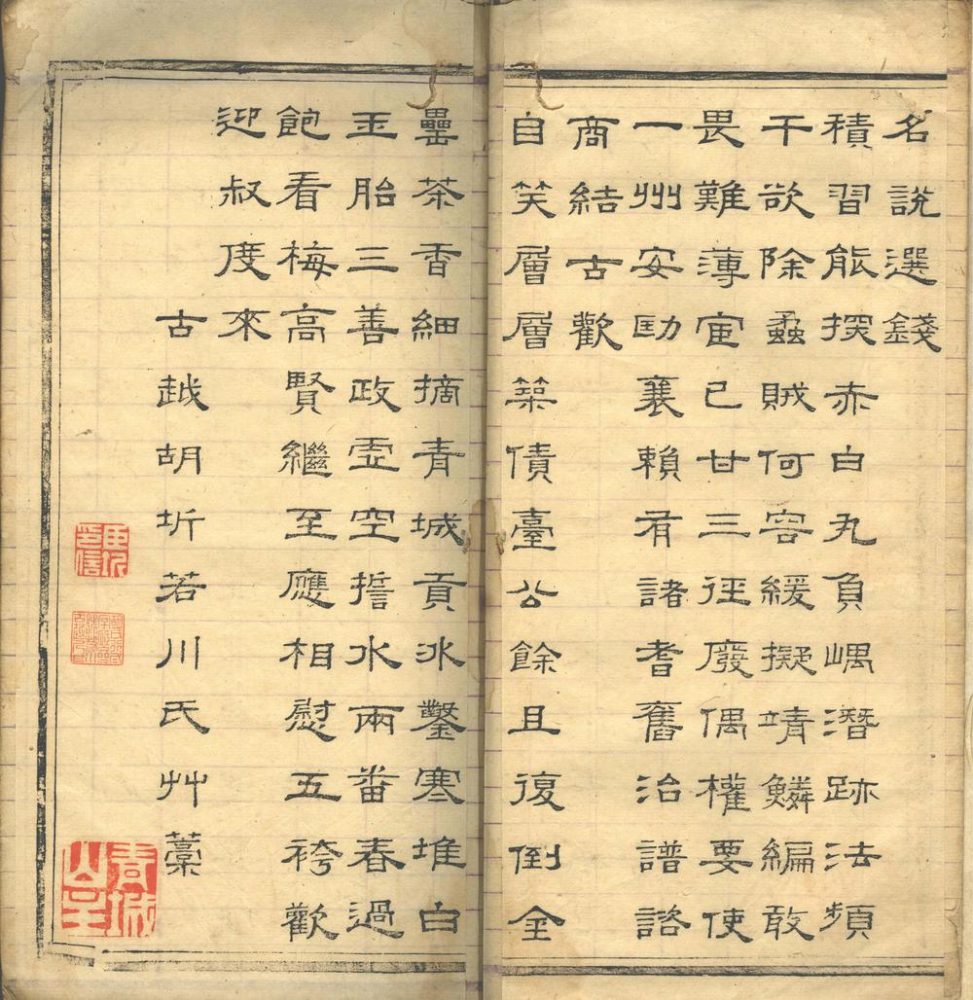 名說選錢
積習能探赤白丸負嵎潛跡法頻
干欲除蟊賊何容緩擬靖鱗編敢
畏難薄宦已甘三徑廢偶權要使
一州安劻襄賴有諸耆舊治譜諮
商結古歡
自笑層層築債臺公餘且復倒金
罍茶香細摘青城貢冰鑿寒堆白
玉胎三善政虛空誓水兩番春過
飽看梅高賢繼至應相慰五袴歡
迎叔度來
古越胡圻若川氏艸藁